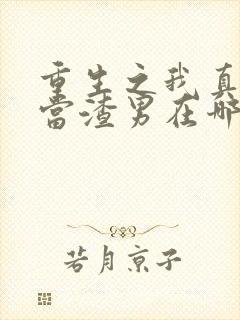 重生之我真
当渣男在哪
若月京子